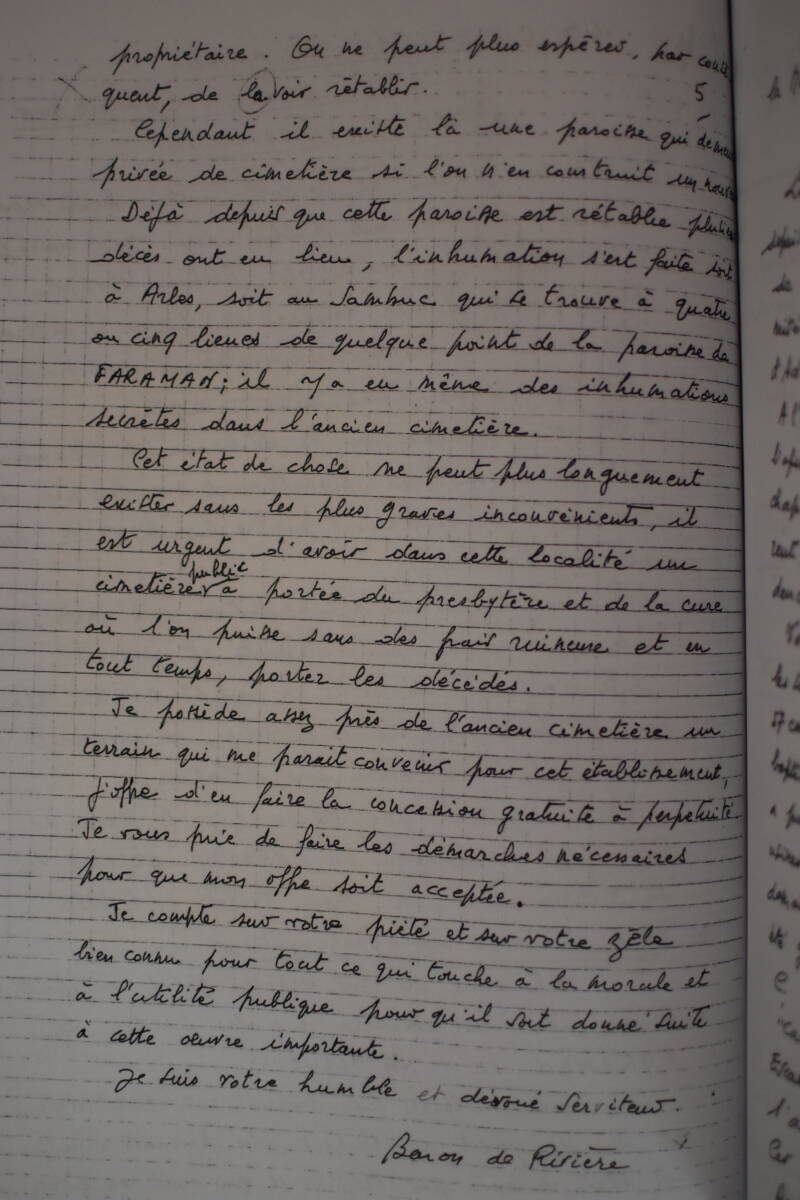 propriétaire. On ne peut plus espérer, par consé
quent, de la voir rétablir.
5
Cependant il existe là une paroisse qui demeu
privée de cimetière si l'on n'en construit un nouv
Déjà depuis que cette paroisse est rétablie plusieu
décès ont eu lieu, l'inhumation s'est faite soit
à Arles, soit au Sambuc qui se trouve à quatre
ou cinq lieues de quelque point de la paroisse de
FARAMAN; il y a eu même des inhumations
secrètes dans l'ancien cimetière.
Cet état de chose ne peut plus longuement
exister sans les plus graves inconvénients, il
est urgent d'avoir dans cette localité un
public
cimetière à portée du presbytère et de la cure
où l'on puisse sans des frais ruineuse et en
tout temps, porter les décédés.
Je possède assez près de l'ancien cimetière un
terrain qui me parait convenir pour cet établissement,
j'offre d'en faire la concession gratuite à perpetuité
Je vous prie de faire les démarches nécessaires
pour que mon offre soit acceptée.
Je compte sur votre piété et sur votre zèle
bien connu pour tout ce qui touche à la morale et
à l'utilité publique pour qu'il soit donné suite
à cette oeuvre importante.
Je suis votre humble et dévoué serviteur.
Baron de Rivière